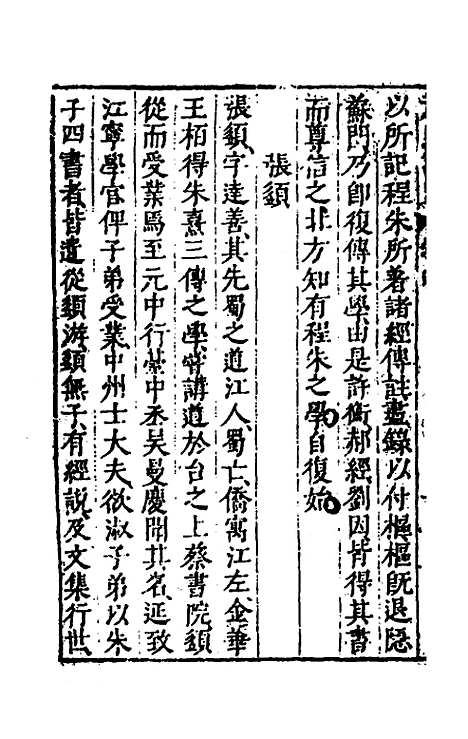 以所記程朱所著諸經傳註盡錄以付樞樞旣退隐
蘇門乃卽復傳其學由是許衡郝經劉因皆得其書
而尊信之北方知有程朱之學自復始
張䇓
張䇓字達善其先蜀之道江人蜀亡僑寓江左金華
王栢得朱熹三傳之學嘗講道於台之上蔡書院䇓
從而受業焉至元中行臺中丞吴曼慶聞其名延致
江寧學官俾子弟受業中州士大夫欲淑子弟以朱
子四書者皆遣從䇓游䇓無子有經說及文集行世